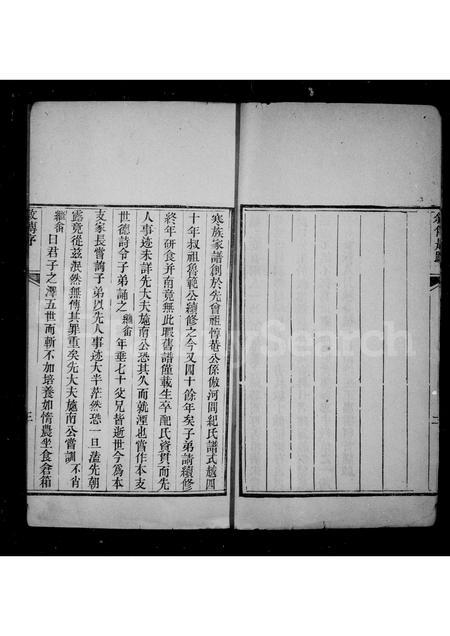 寒族家譜創於先曾祖惇菴公係倣河間紀氏譜式越四
十年叔祖魯範公續修之今又四十餘年矣子弟請續修
終年研食并南竟無此暇舊譜僅載生卒配氏資貫而先
人事迹未詳先大夫施南公恐其久而就湮也嘗作本支
世德詩令子弟誦之繼畬年垂七十父兄皆逝世今爲本
支家長嘗詢子弟以先人事迹大半茫然恐一旦溘先朝
露竟從茲泯然無傳其罪重矣先大夫施南公嘗訓不肖
繼畬曰君子之澤五世而斬不加培養如惰農坐食倉箱
敘傳序
三
二